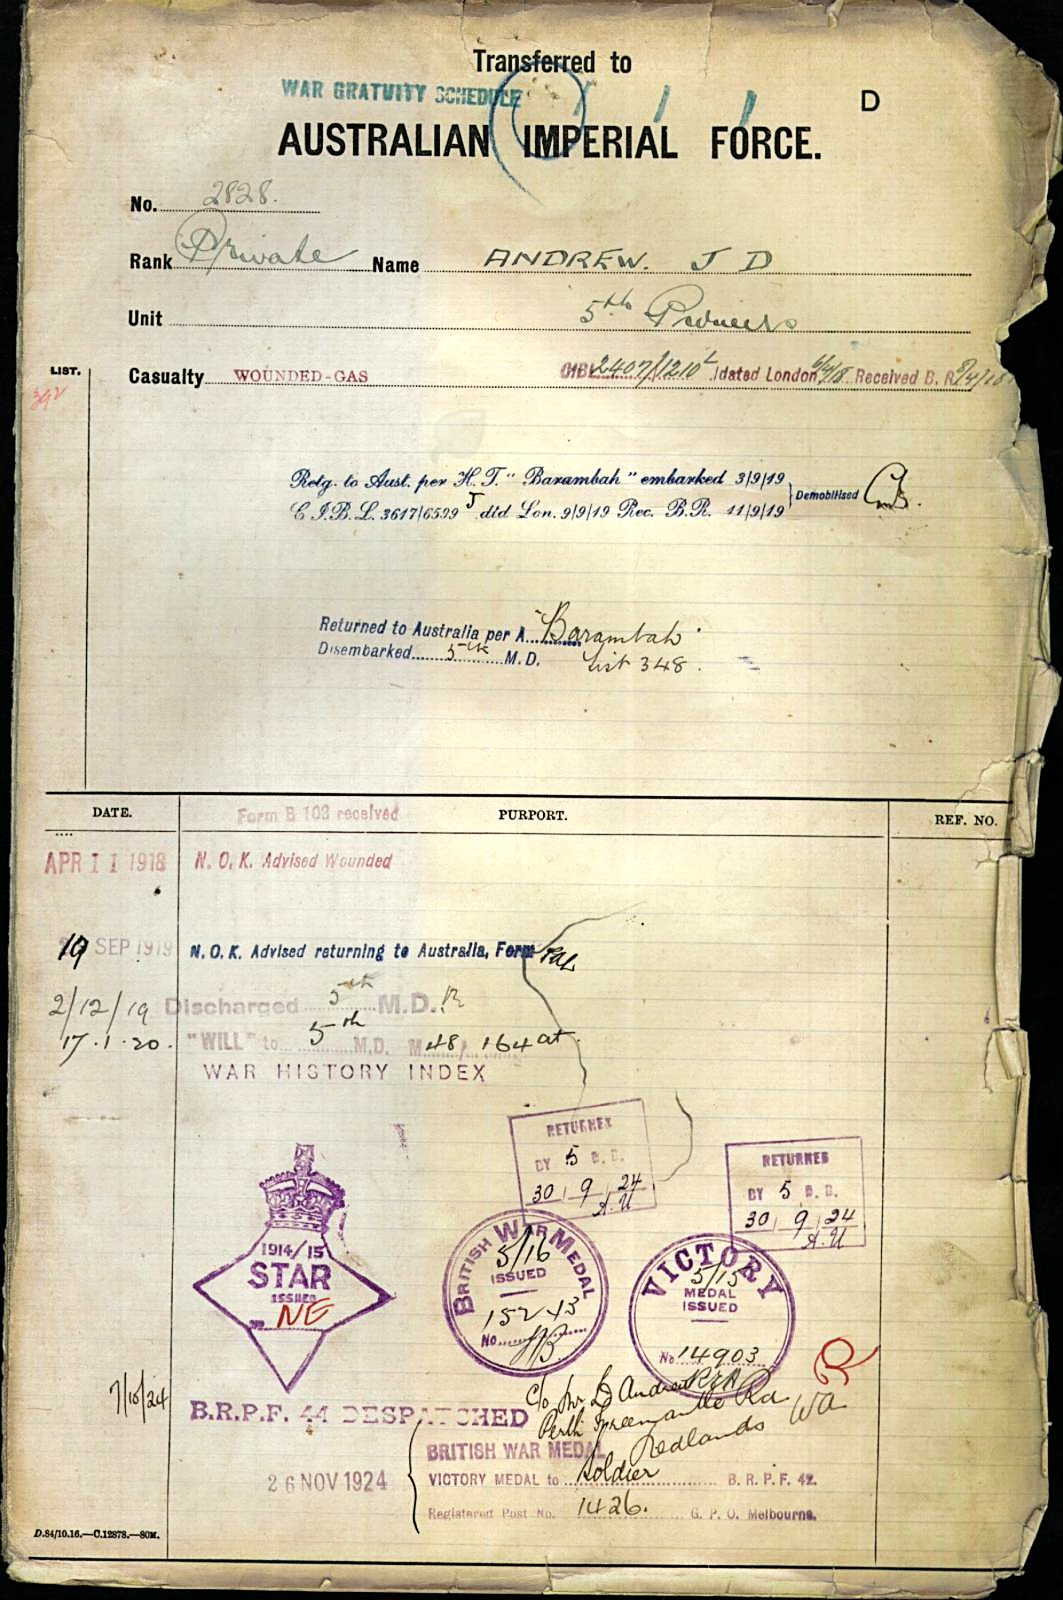 Transferred to
WAR GRATUITY SCHEDULE
D
AUSTRALIAN IMPERIAL FORCE.
No. 2828.
Rank Private Name ANDREW. J D
Unit 5th Pioneers
LIST.
392
Casualty WOUNDED-GAS CIBL 2407/1210 L dated London 6/4/18 Received B. R. 8/4/18
Retg. to Aust. per H. T. "Barambah" embarked 3/9/19
C I. B. L. 3617/6599 J dtd Lon. 9/9/19 Rec. B.R. 11/9/19
Demobilised
Returned to Australia per A "Barambah"
Disembarked 5th M. D. List 348.
DATE. PURPORT. REF. NO.
Form B 103 received
APR 11 1918 N. O. K. Advised Wounded
19 SEP 1919 N. O. K. Advised returning to Australia, Form
2/12/19 Discharged 5th M.D.
17.1.20. "WILL" to 5th M.D. M 48, 164 at
WAR HISTORY INDEX
RETURNED
BY 5 B. D.
30 9 24
A.U
RETURNED
BY 5 B. D.
30 9 24
A.U
1914/15
STAR
ISSUED
NE
BRITISH WAR MEDAL
5/16
ISSUED
15243
No.
VICTORY
5/15
MEDAL
ISSUED
No 14903
R
7/10/24
B.R.P.F. 44 DESPATCHED
c/o Mr D Andrew
Perth Fremantle Rd
Nedlands WA
BRITISH WAR MEDAL
26 NOV 1924
VICTORY MEDAL to soldier B. R. P. F. 42.
Registered Post No. 1426. G. P. O. Melbourne.
D.84/10.16.—C.12878.—80M.